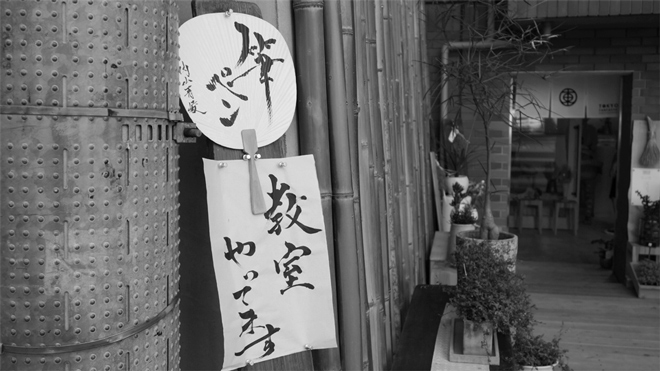 筆
ペン
教室
やってます